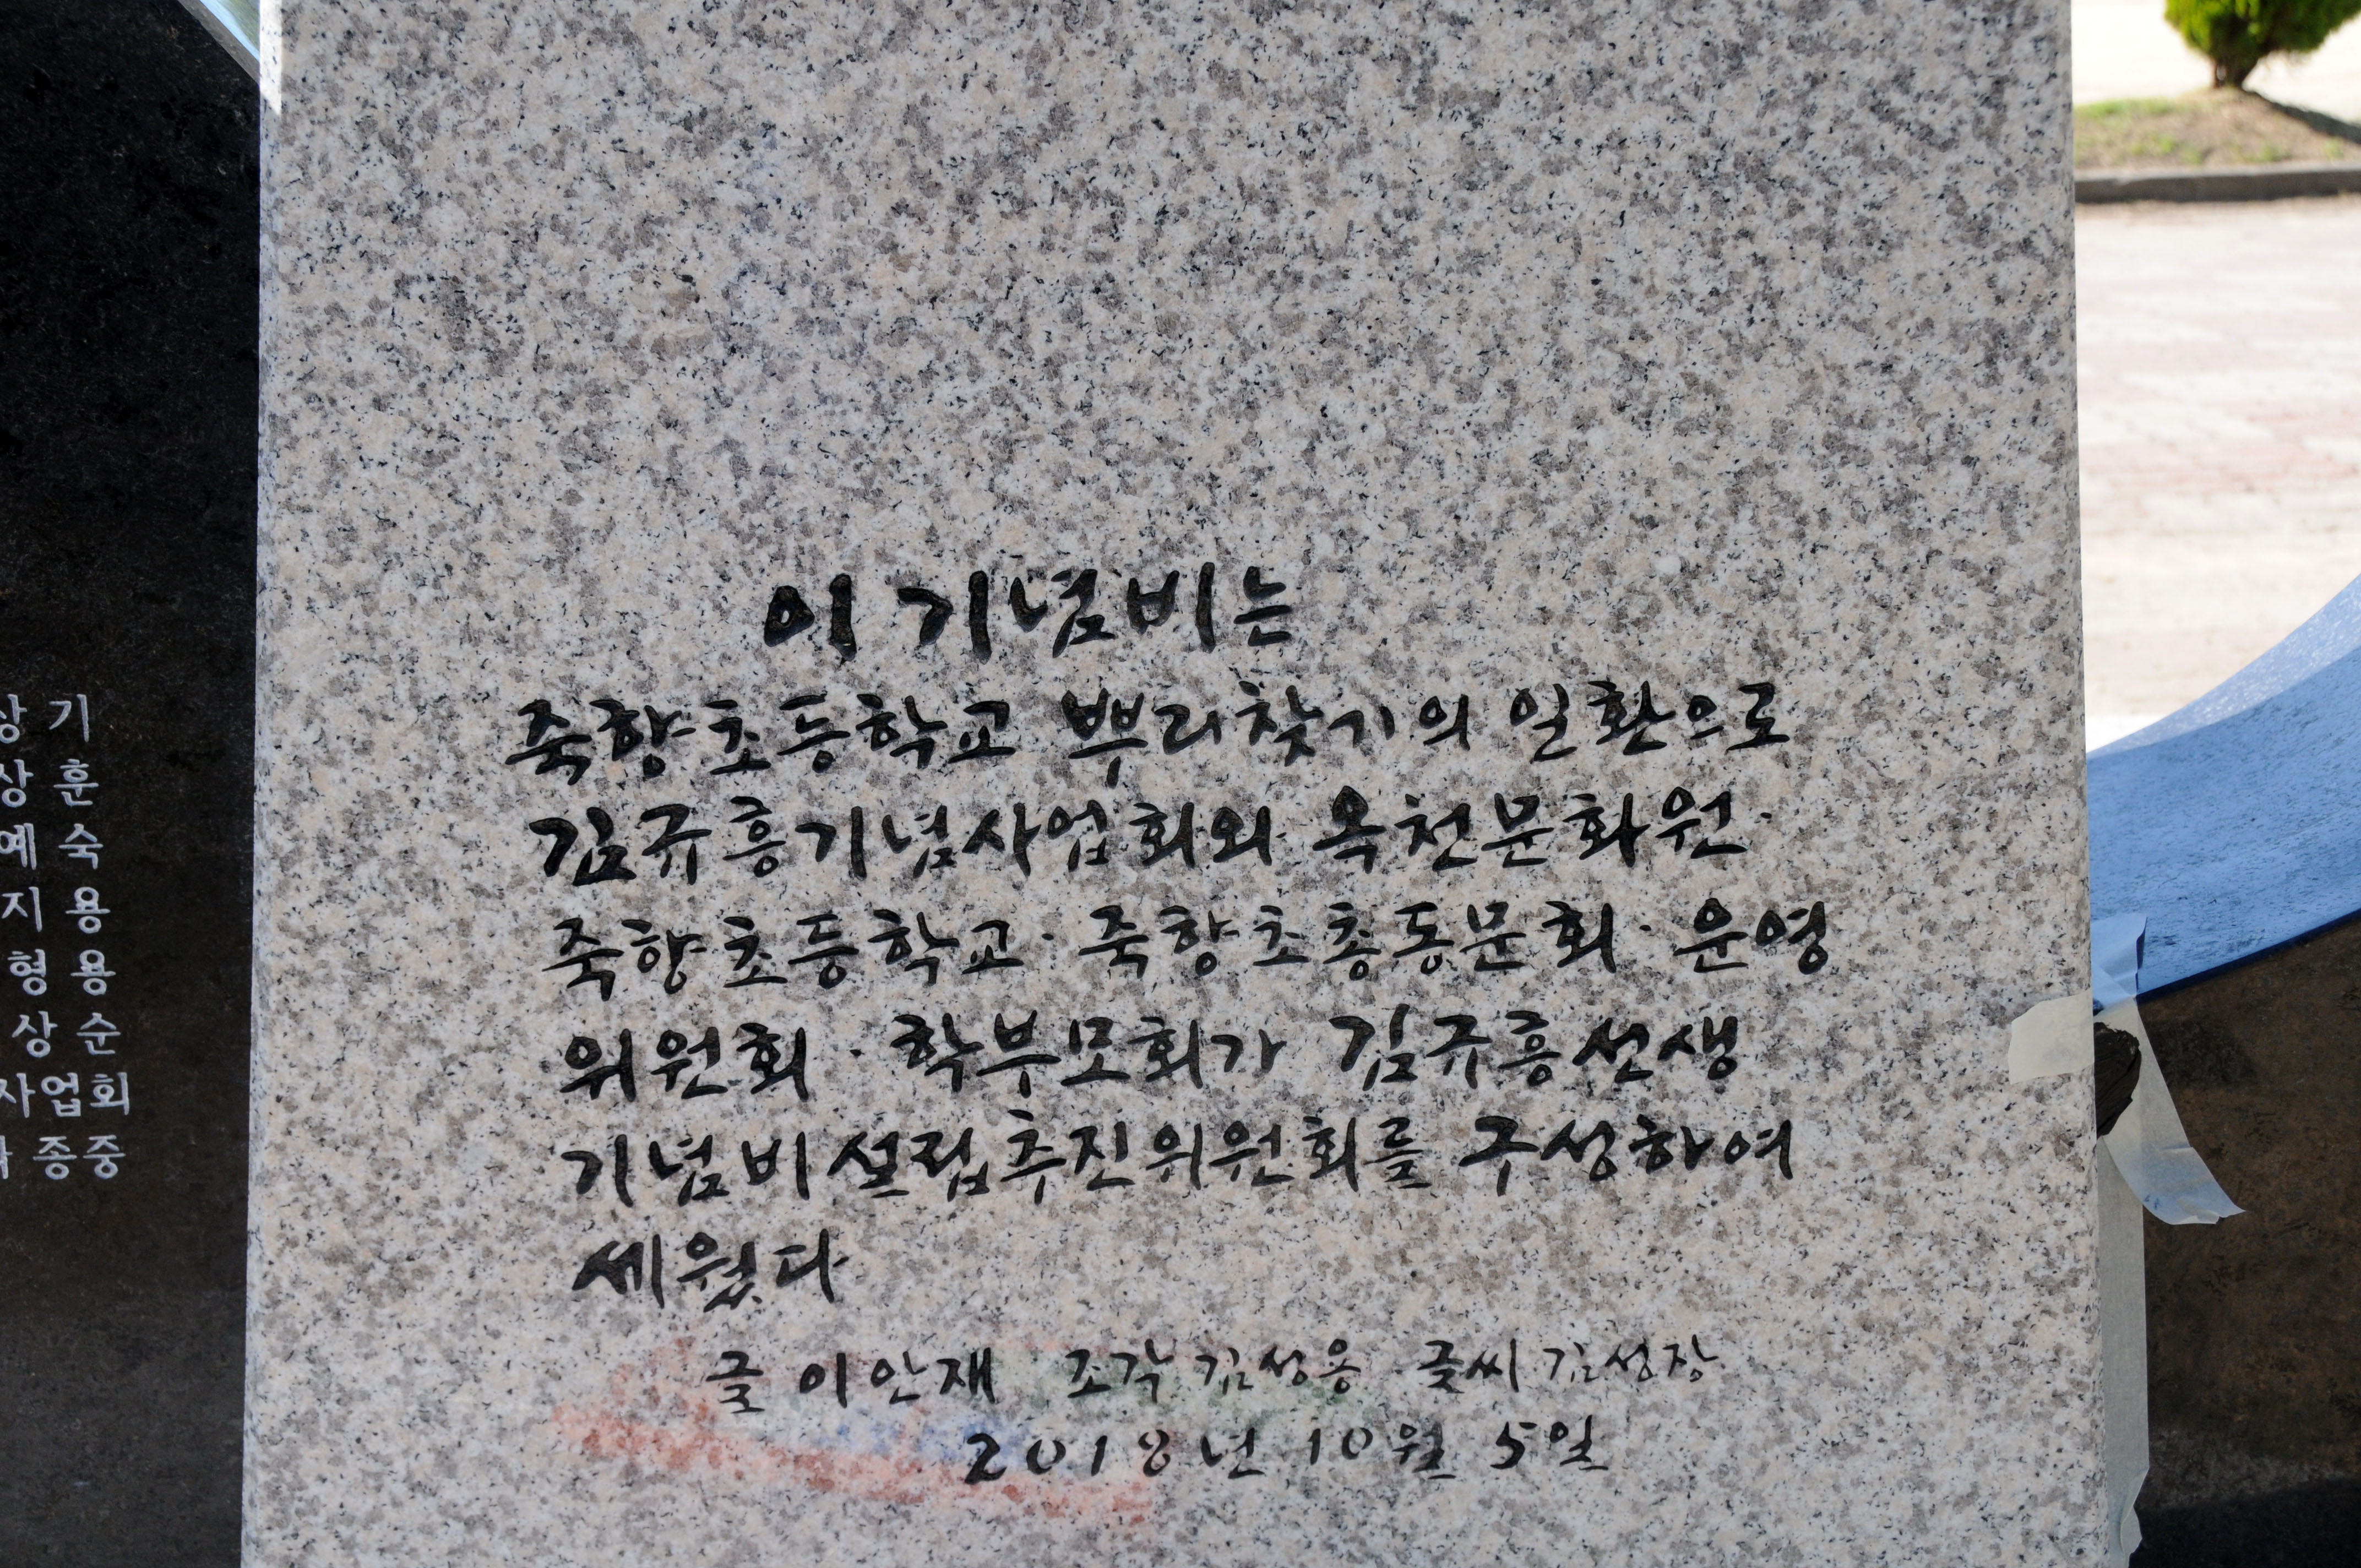 상 기
상 훈
예 숙
지 용
형 용
상 순
사업회
종중
이 기념비는
죽향초등학교 뿌리찾기의 일환으로
김규흥기념사업회와 옥천문화원·
죽향초등학교·죽향초총동문회·운영
위원회·학부모회가 김규흥선생
기념비설립추진위원회를 구성하여
세웠다
글 이안재 조각 김성용 글씨 김성장
2018년 10월 5일